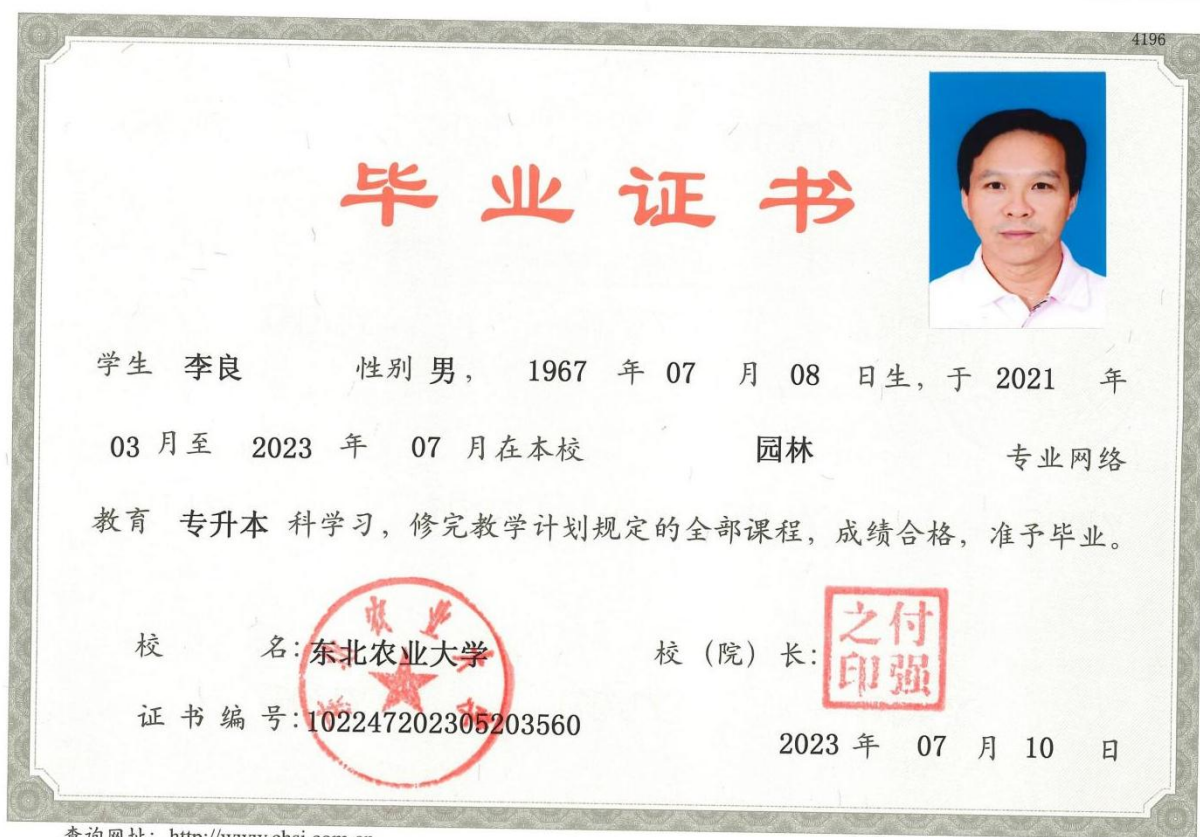 4196
毕业证书
学生 李良 性别 男， 1967 年 07 月 08 日生，于 2021 年
03 月至 2023 年 07 月在本校 园林 专业网络
教育 专升本 科学习，修完教学计划规定的全部课程，成绩合格，准予毕业。
校 名：东北农业大学 校（院）长：
付强之印
证书编号：102247202305203560
2023 年 07 月 10 日
查询网址：http://www.chsi.com.cn